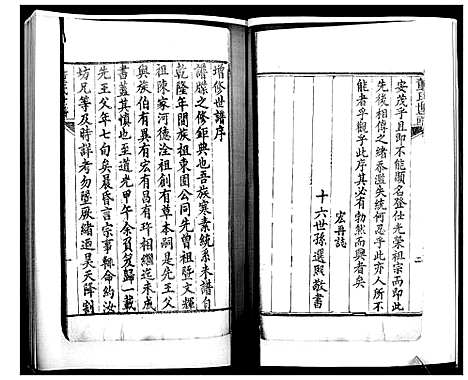 安茂乎且即不能顯名登仕光榮祖宗而即此
先後相傳之緒忝濫失統何忍乎此亦人所不
能者乎觀乎此序其必有勃然而興者矣
宏再誌
十六世孫選照敬書
增修世譜序
譜牒之修鉅典也吾族寒素統系未譜自
乾隆年間族祖東園公同先曾祖暨文輝
祖陳家河德淦祖創有草本嗣是先王父
與族伯有宏有昌有玶相繼迄未成
書蓋其慎也至道光甲午余負笈歸一載
先王父年七旬矣晨昏言宗事輒命約汝
坊兄等及時詳考勿墜厥緒迺昊天降割